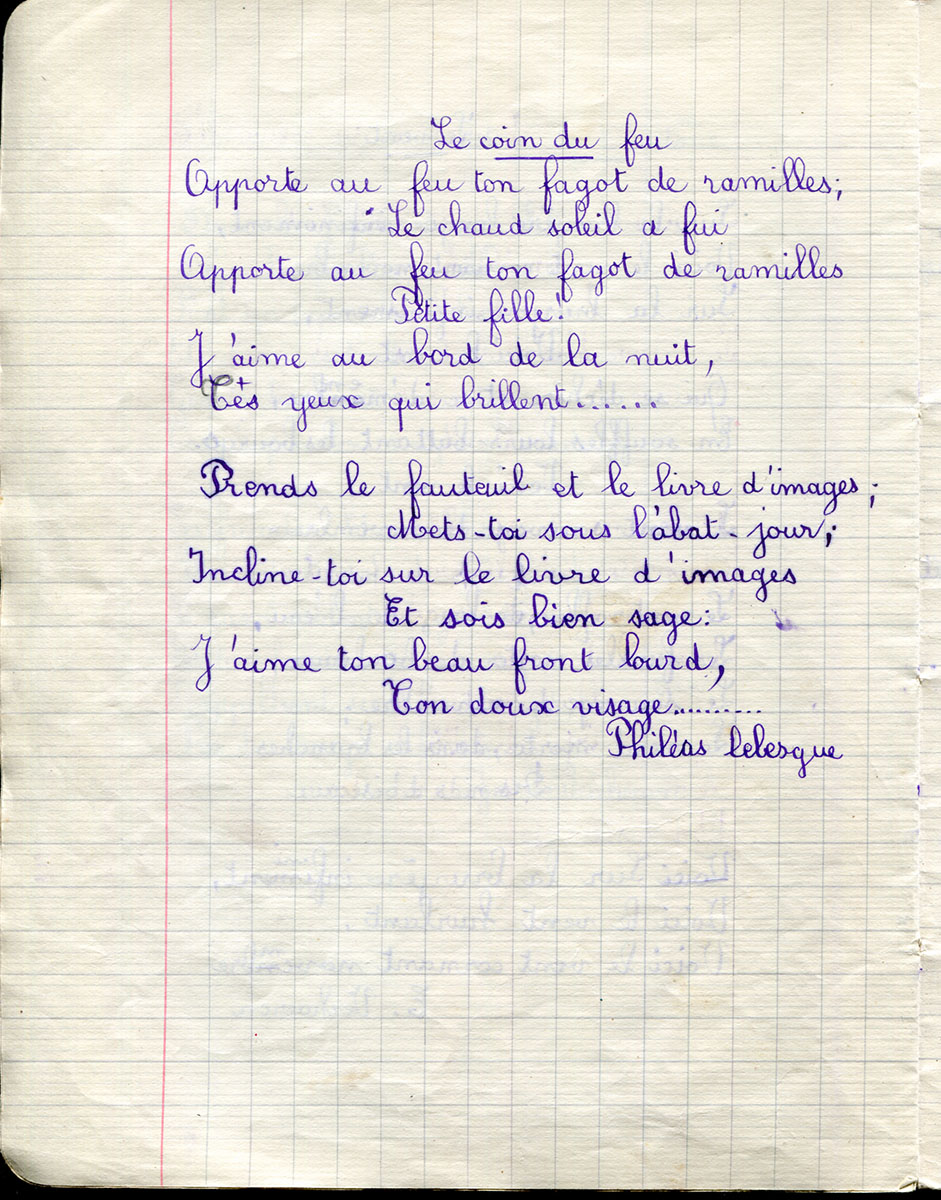 Le coin du feu
Apporte au feu ton fagot de ramilles;
Le chaud soleil a fui
Apporte au feu ton fagot de ramilles
Petite fille!
J'aime au bord de la nuit,
Tes yeux qui brillent......
Prends le fauteuil et le livre d'images;
Mets-toi sous l'abat-jour;
Incline-toi sur le livre d'images
Et sois bien sage:
J'aime ton beau front lourd,
Ton doux visage..........
Philéas Lebesgue